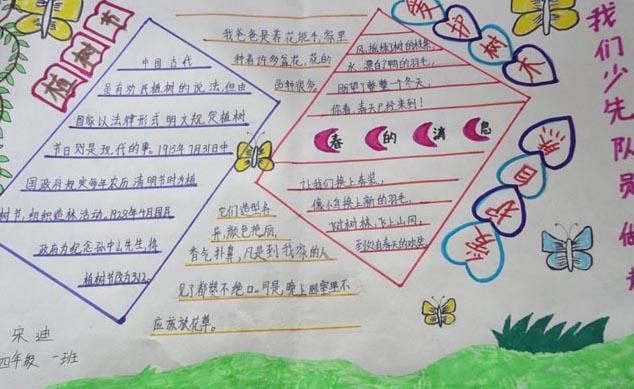 植树节
中国古代
虽有劝民植树的说法,但由
国家以法律形式明文规定植树
节日则是现代的事。1915年7月31日中
国政府规定每年农历清明节时为植
树节,组织造林活动。1928年4月国民
政府为纪念孙中山先生,将
植树节改为3.12。
我爸爸是养花能手,家里
种着许多盆花,花的
品种很多。
它们造型各
异,颜色艳丽,
香气扑鼻,凡是到我家的人
见了都赞不绝口。可是,晚上卧室里不
应该放花草。
风,摇绿了树的枝条,
水,漂白了鸭的羽毛,
盼望了整整一个冬天,
你看,春天已经来到!
春的消息
让我们换上春装,
像小鸟换上新的羽毛,
飞过树林,飞上山冈,
到处有春天的欢笑。
爱护树木
美好
我们少先队员做
宋迪
四年级 一班